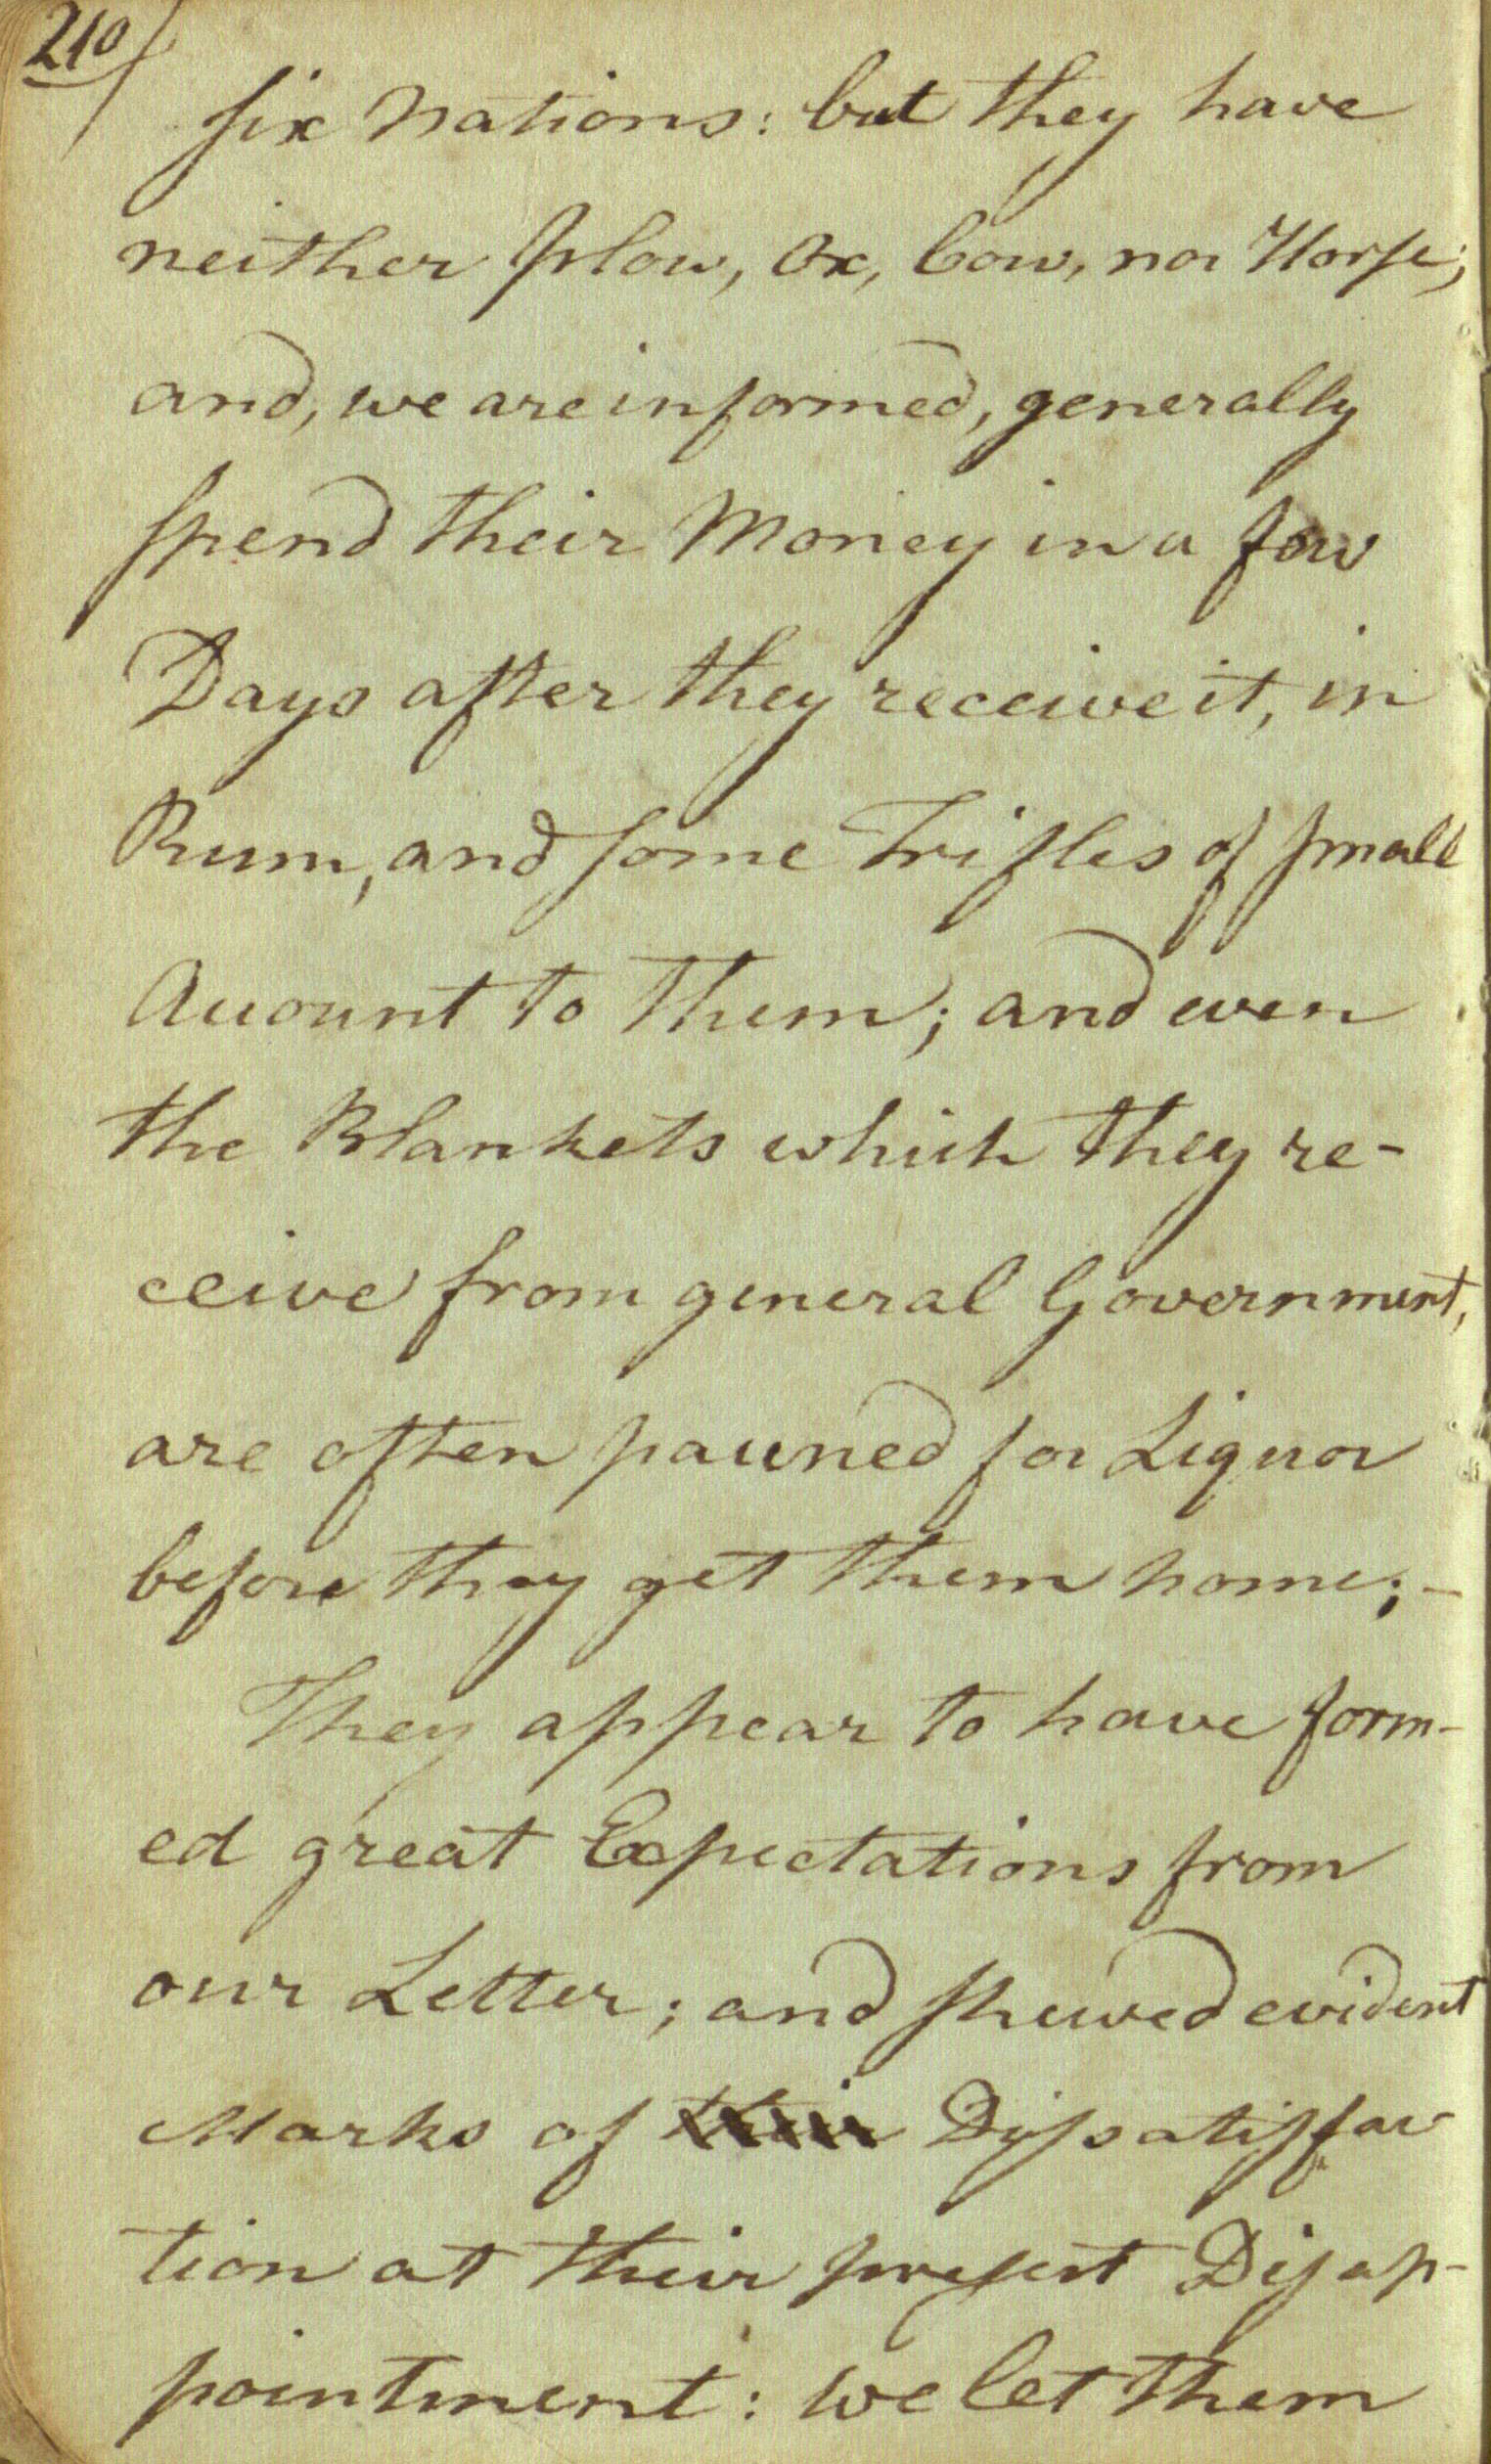 210
six Nations: but they have
neither plow, Ox, Cow, nor Horse;
and, we are informed, generally
spend their Money in a few
Days after they receive it, in
Rum, and some Trifles of small
Account to them; and even
the Blankets which they re-
ceive from general Government,
are often pawned for Liquor
before they get them home;-
They appear to have form-
ed great Expectations from
our Letter; and shewed evident
Marks of their Dissatisfac
tion at their present Disap-
pointment: we let them